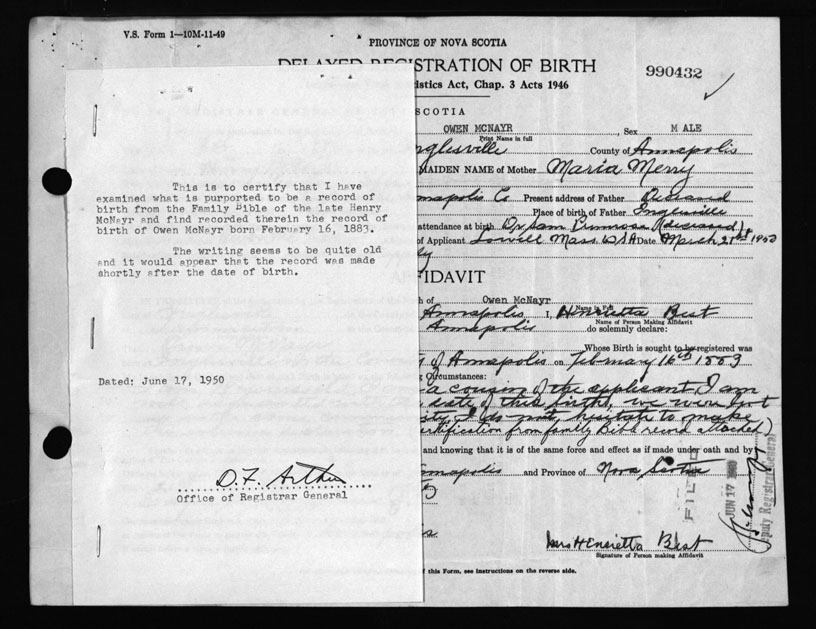 V.S. Form 1—10M-11-49
PROVINCE OF NOVA SCOTIA
DELAYED REGISTRATION OF BIRTH
990432
istics Act, Chap. 3 Acts 1946
SCOTIA
OWEN MCNAYR, Sex M ALE
Print Name in full
nglesville County of Annapolis
MAIDEN NAME of Mother Maria Merry
napolis Co Present address of Father Deceased
Place of birth of Father Inglesville
attendance at birth Dr Sam Primrose (deceased)
of Applicant Lowell Mass USA Date March 21st 1950
This is to certify that I have
examined what is purported to be a record of
birth from the Family Bible of the late Henry
McNayr and find recorded therein the record of
birth of Owen McNayr born February 16, 1883.
The writing seems to be quite old
and it would appear that the record was made
shortly after the date of birth.
Dated: June 17, 1950
Office of Registrar General
FIDAVIT
h of Owen McNayr
Name in Full
Annapolis I, Henrietta Best
Name of Person Making Affidavit
Annapolis do solemnly declare:
Whose Birth is sought to be registered was
of Annapolis on February 16th 1883
Circumstances:
a cousin of the applicant I am
date of this birth, we were
I do not hesitate to make
ertification from family Bible record attached)
and knowing that it is of the same force and effect as if made under oath and by
nnapolis and Province of Nova Scotia
FILED
JUN 17 1950
puty Registrar General
Mrs Henrietta Best
Signature of Person making Affidavit
f this Form, see instructions on the reverse side.